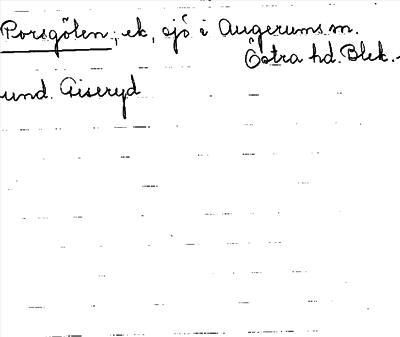 Porsgölen, ek, sjö i Augerums sn.
Östra hd. Blek.
und. Giseryd